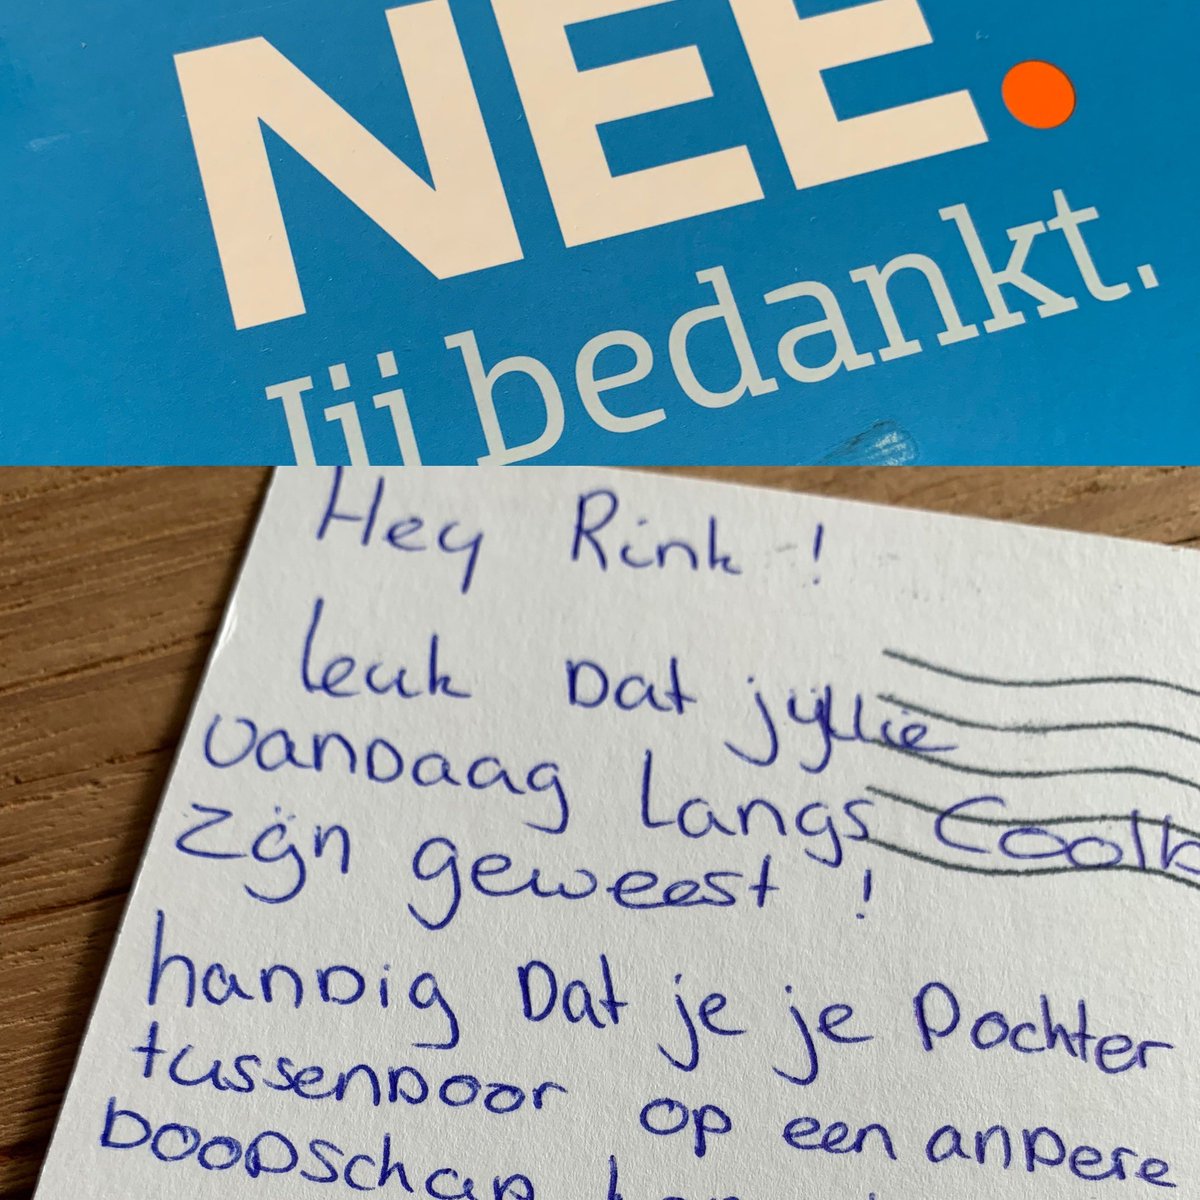 NEE.
Jij bedankt.
Hey Rink!
leuk Dat jyllie
vandaag Langs Coolb
zijn geweest!
handig Dat je je Dochter
tussendoor op een andere
boodschap